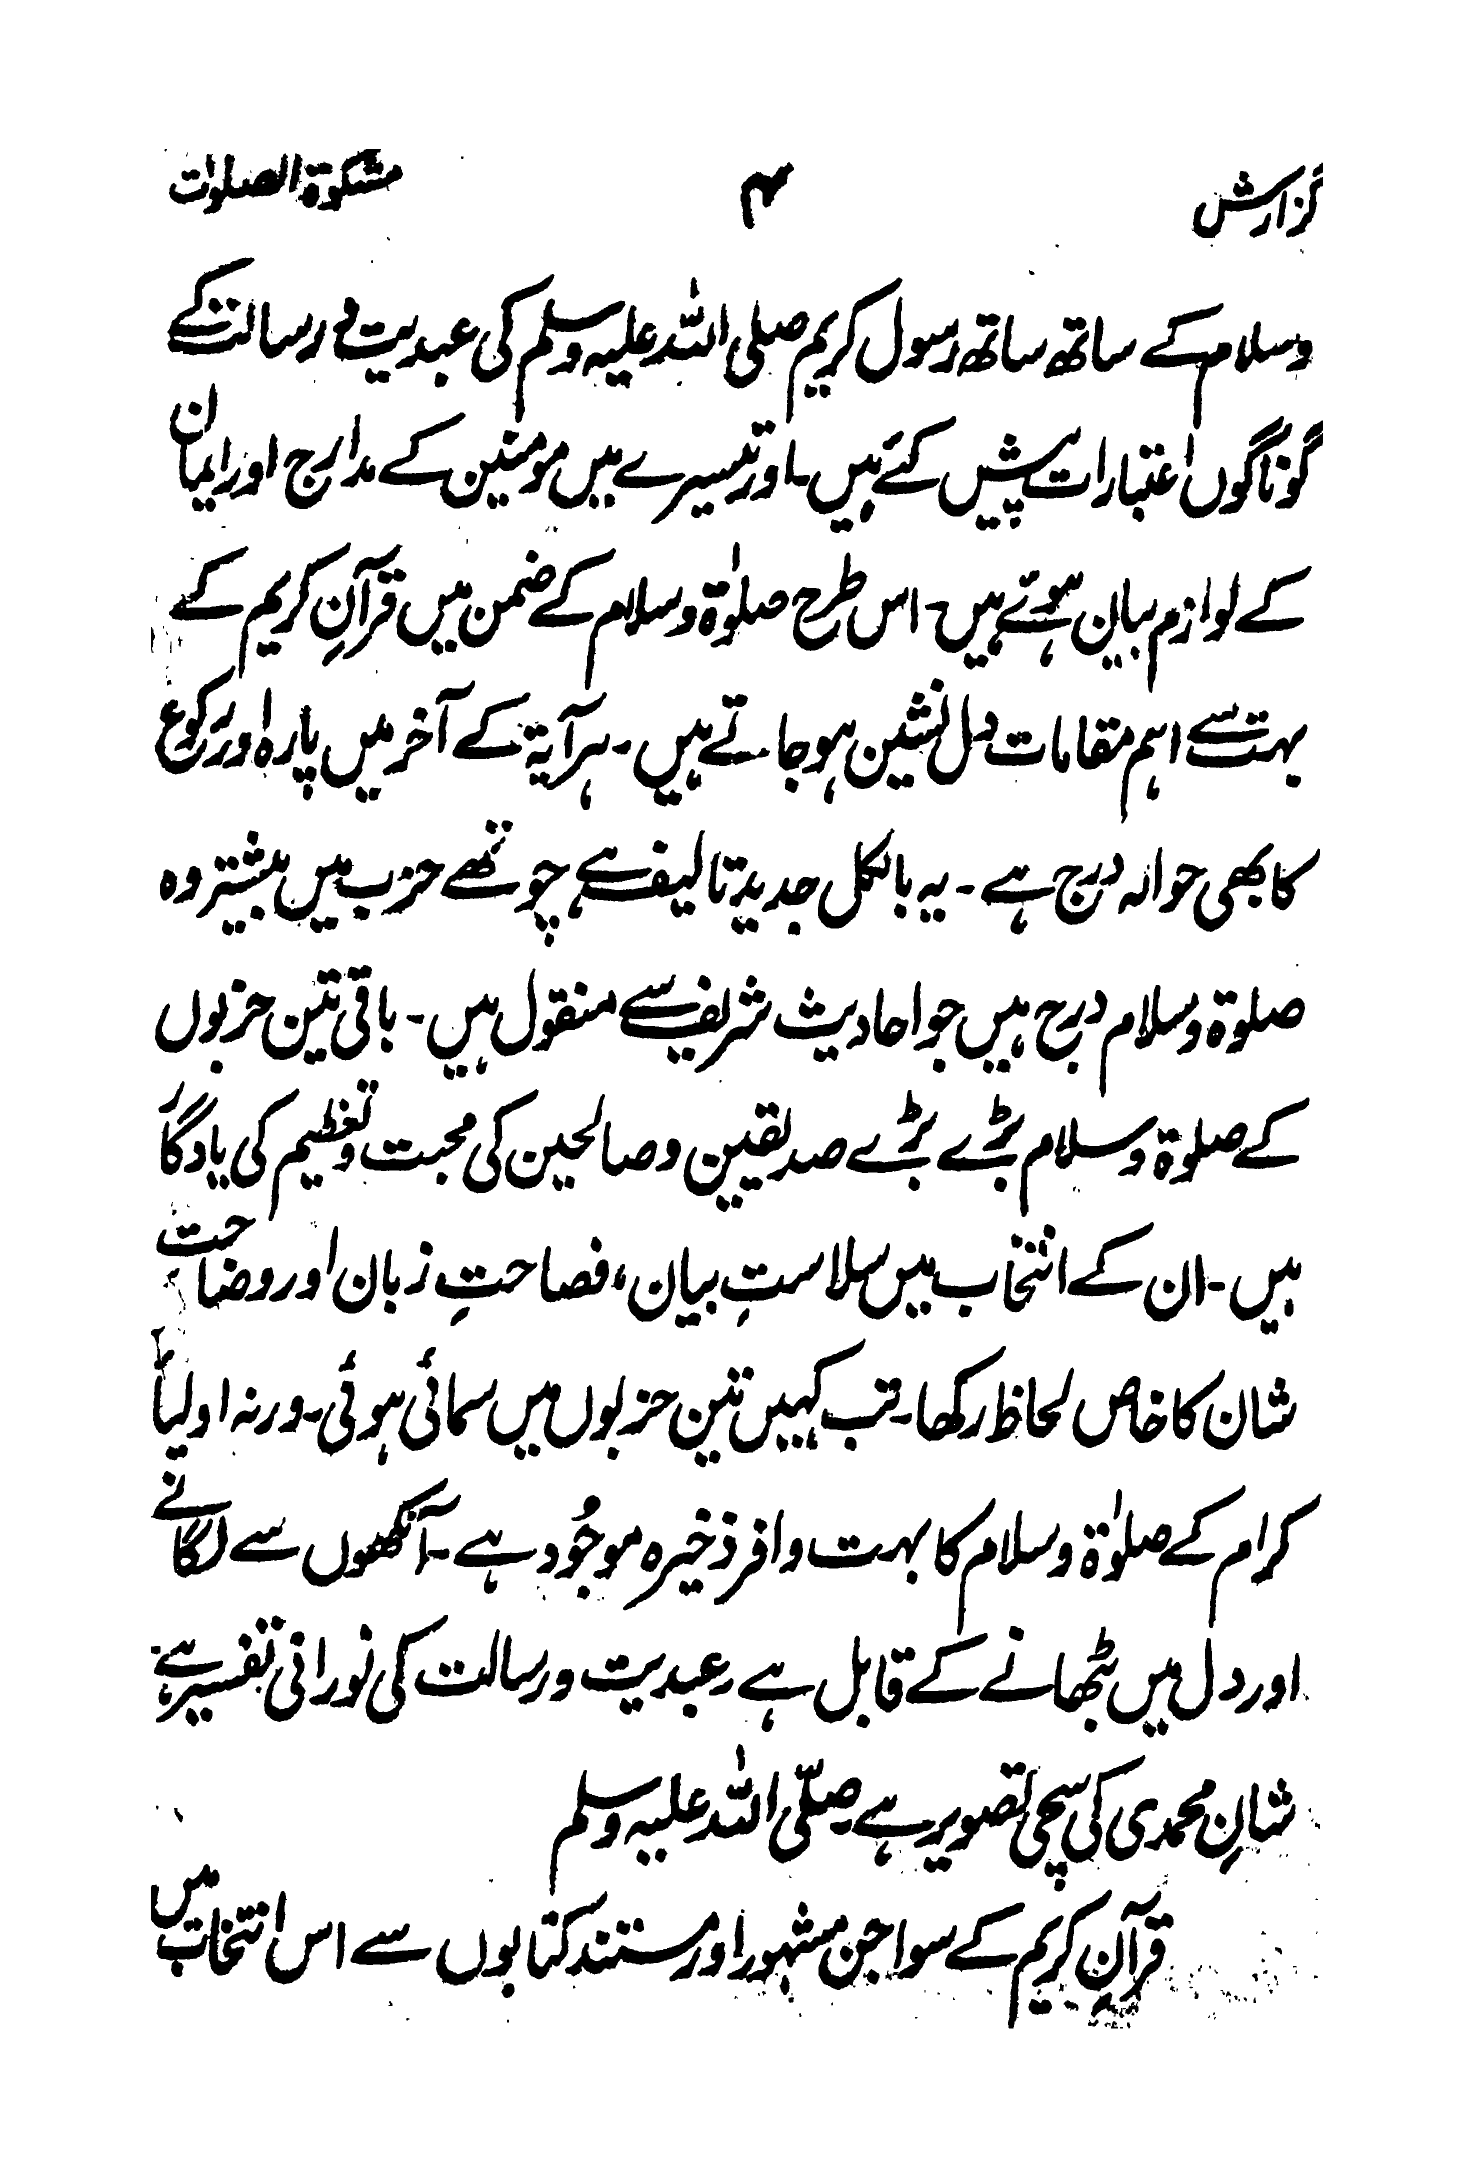 گزارش ۴ مشکوۃ الصلوٰت
وسلام کے ساتھ ساتھ رسول کریم صلی اللہ علیہ وسلم کی عبدیت و رسالت کے
گوناگوں اعتبارات پیش کئے ہیں۔ اور تیسرے میں مومنین کے مدارج اور ایمان
کے لوازم بیان ہوئے ہیں۔ اس طرح صلوٰۃ وسلام کے ضمن میں قرآنِ کریم کے
بہت سے اہم مقامات دل نشین ہو جاتے ہیں۔ ہر آیۃ کے آخر میں پارہ اور رکوع
کا بھی حوالہ درج ہے۔ یہ بالکل جدید تالیف ہے چوتھے حزب میں بیشتر وہ
صلوۃ وسلام درج ہیں جو احادیث شریف سے منقول ہیں۔ باقی تین حزبوں
کے صلوۃ وسلام بڑے بڑے صدیقین وصالحین کی محبت وتعظیم کی یادگار
ہیں۔ ان کے انتخاب میں سلاستِ بیان، فصاحتِ زبان اور وضاحت
شان کا خاص لحاظ رکھا۔ تب کہیں تین حزبوں میں سمائی ہوئی۔ ورنہ اولیأ
کرام کے صلوٰۃ وسلام کا بہت وافر ذخیرہ موجُود ہے۔ آنکھوں سے لگانے
اور دل میں بٹھانے کے قابل ہے۔ عبدیت ورسالت کی نورانی تفسیر ہے
شانِ محمدی کی سچی تصویر ہے۔ صلّی اللہ علیہ وسلم
قرآنِ کریم کے سوا جن مشہور اور مستند کتابوں سے اس انتخاب میں